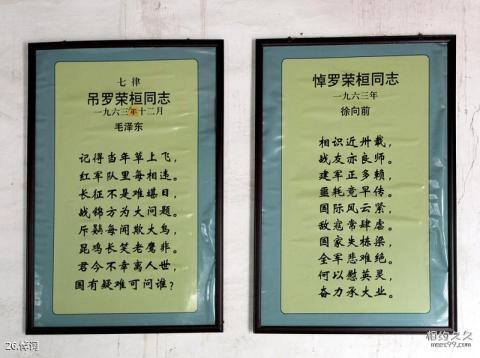 七律
吊罗荣桓同志
一九六三年十二月
毛泽东
记得当年草上飞，
红军队里每相违。
长征不是难堪日，
战锦方为大问题。
斥鷃每闻欺大鸟，
昆鸡长笑老鹰非。
君今不幸离人世，
国有疑难可问谁？
悼罗荣桓同志
一九六三年
徐向前
相识近卅载，
战友亦良师。
建军正多赖，
噩耗竟早传。
国际风云紧，
敌寇常肆虐。
国家失栋梁，
全军悲难绝。
何以慰英灵，
奋力承大业。
26.悼词
相约久久
meet99.com